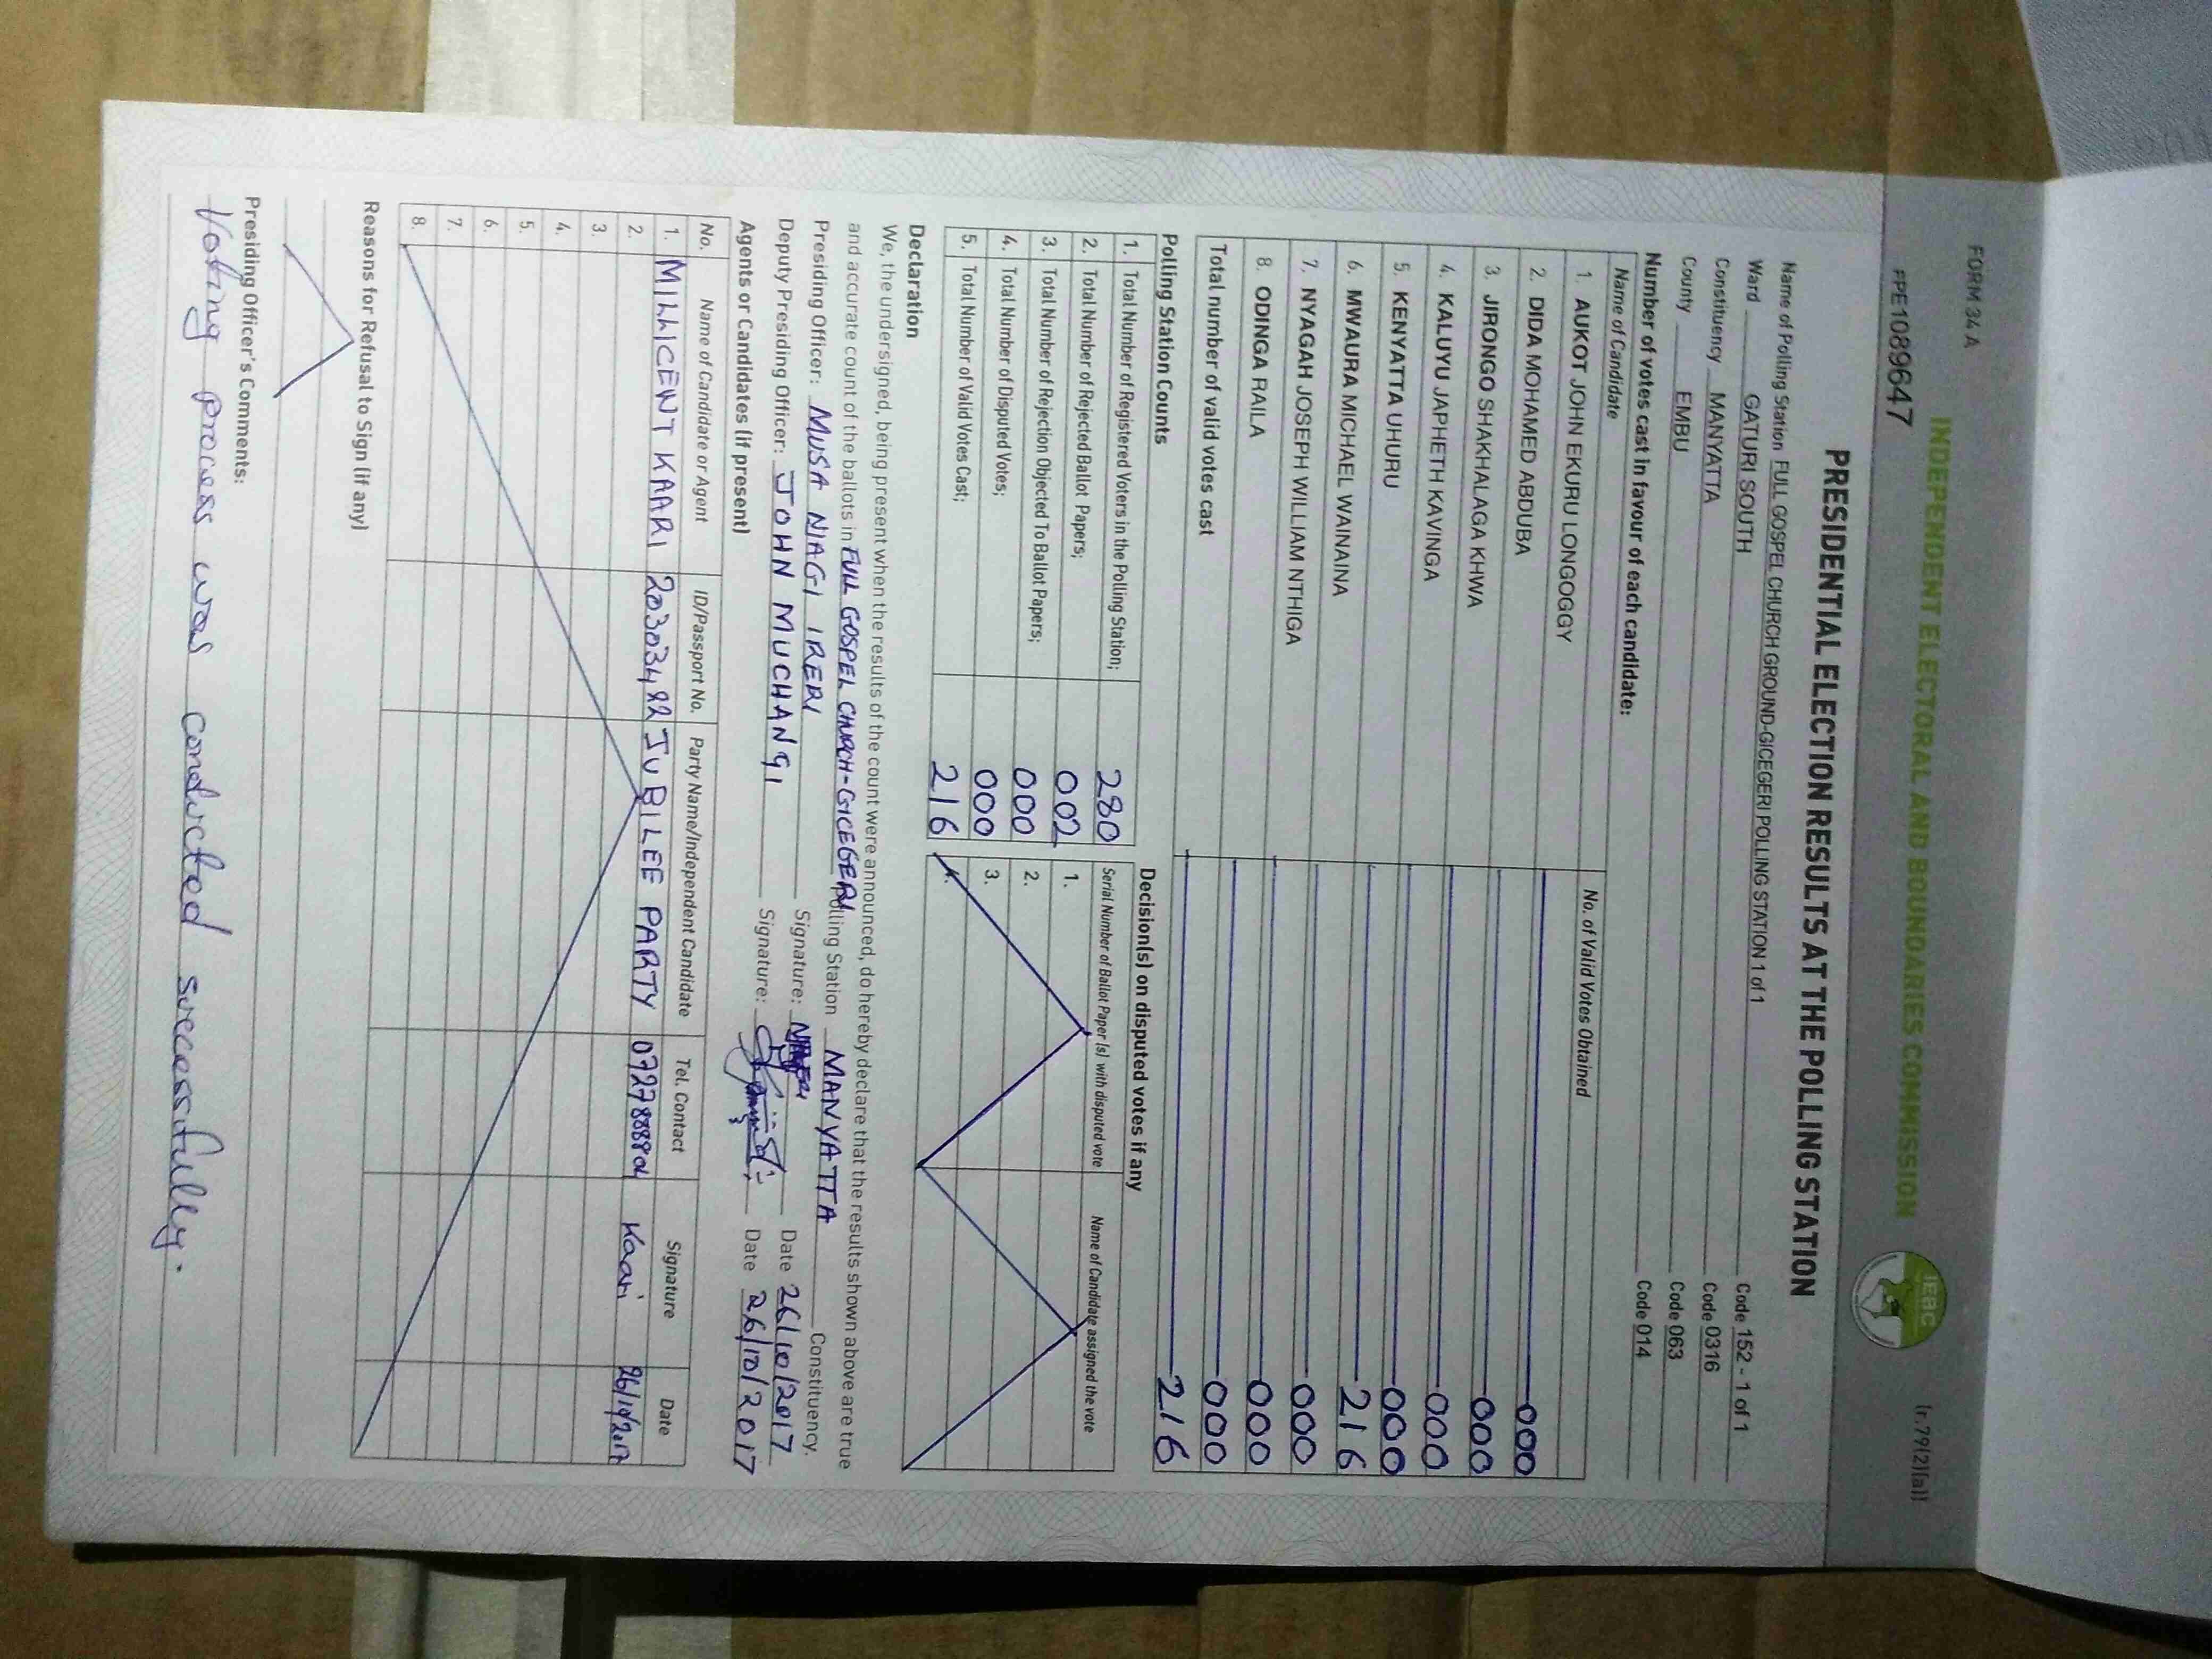 FORM 34 A
(r.79(2)(a))
INDEPENDENT ELECTORAL AND BOUNDARIES COMMISSION
IEBC
PPE1089647
PRESIDENTIAL ELECTION RESULTS AT THE POLLING STATION
Name of Polling Station FULL GOSPEL CHURCH GROUND-GICEGERI POLLING STATION 1 of 1 Code 152 - 1 of 1
Ward GATURI SOUTH Code 0316
Constituency MANYATTA Code 063
County EMBU Code 014
Number of votes cast in favour of each candidate:
Name of Candidate No. of Valid Votes Obtained
1. AUKOT JOHN EKURU LONGOGGY 000
2. DIDA MOHAMED ABDUBA 000
3. JIRONGO SHAKHALAGA KHWA 000
4. KALUYU JAPHETH KAVINGA 000
5. KENYATTA UHURU 216
6. MWAURA MICHAEL WAINAINA 000
7. NYAGAH JOSEPH WILLIAM NTHIGA 000
8. ODINGA RAILA 000
Total number of valid votes cast 216
Polling Station Counts
1. Total Number of Registered Voters in the Polling Station; 280
2. Total Number of Rejected Ballot Papers; 002
3. Total Number of Rejection Objected To Ballot Papers; 000
4. Total Number of Disputed Votes; 000
5. Total Number of Valid Votes Cast; 216
Decision(s) on disputed votes if any
Serial Number of Ballot Paper (s) with disputed vote Name of Candidate assigned the vote
1.
2.
3.
4.
Declaration
We, the undersigned, being present when the results of the count were announced, do hereby declare that the results shown above are true
and accurate count of the ballots in FULL GOSPEL CHURCH-GICEGERI Polling Station MANYATTA Constituency.
Presiding Officer: MUSA NJAGI IRERI Signature: Date 26/10/2017
Deputy Presiding Officer: JOHN MUCHANGI Signature: Date 26/10/2017
Agents or Candidates (if present)
No. Name of Candidate or Agent ID/Passport No. Party Name/Independent Candidate Tel. Contact Signature Date
1. MILLICENT KAARI JUBILEE PARTY Kaari 26/10/2017
2.
3.
4.
5.
6.
7.
8.
Reasons for Refusal to Sign (if any)
Presiding Officer's Comments:
Voting process was conducted successfully.